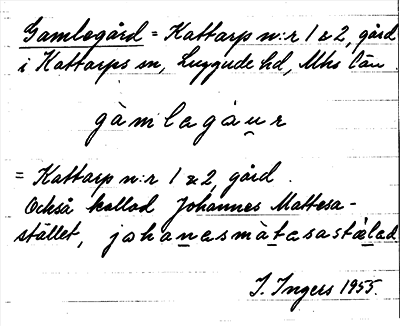 Gamlegård = Kattarp n:r 1 & 2, gård
i Kattarps sn, Luggude hd, Mhs län.
gàmlagáu̯r
= Kattarp n:r 1 & 2, gård.
Också kallad Johannes Mattesa-
stället, johanesmàtesastä̀lad.
I. Ingers 1955.